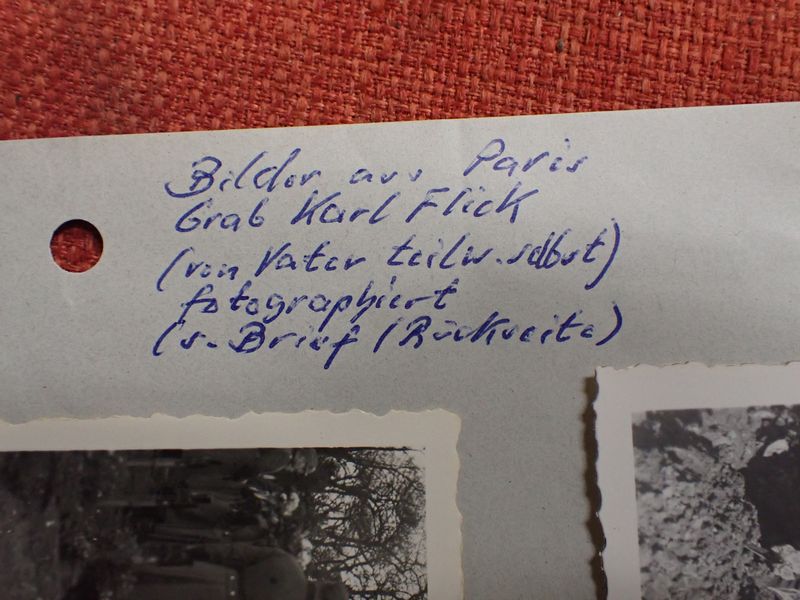 Bilder aus Paris
Grab Karl Flick
(von Vater teilw. selbst)
fotographiert
(s. Brief / Rückseite)